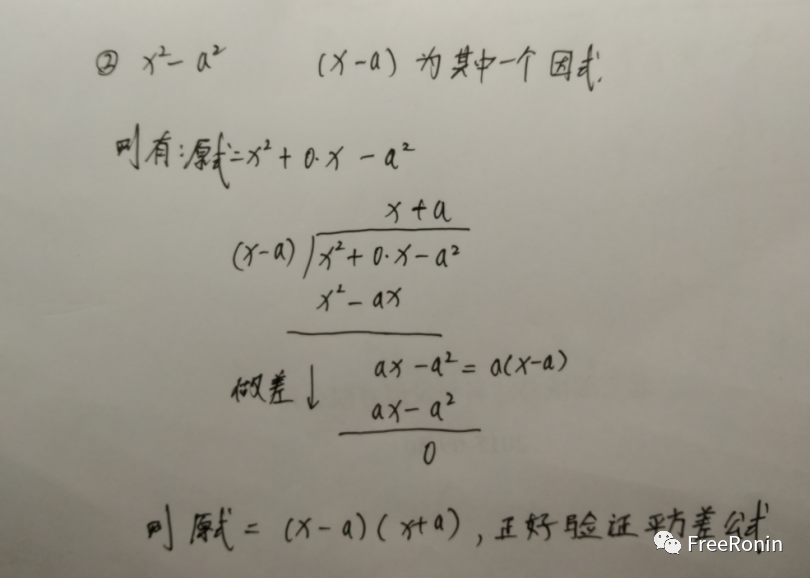 ② x²-a² (x-a)为其中一个因式.
则有:原式=x²+0·x-a²
x+a
(x-a) x²+0·x-a²
x²-ax
ax-a²=a(x-a)
做差↓
ax-a²
0
则原式=(x-a)(x+a),正好验证平方差公式
FreeRonin